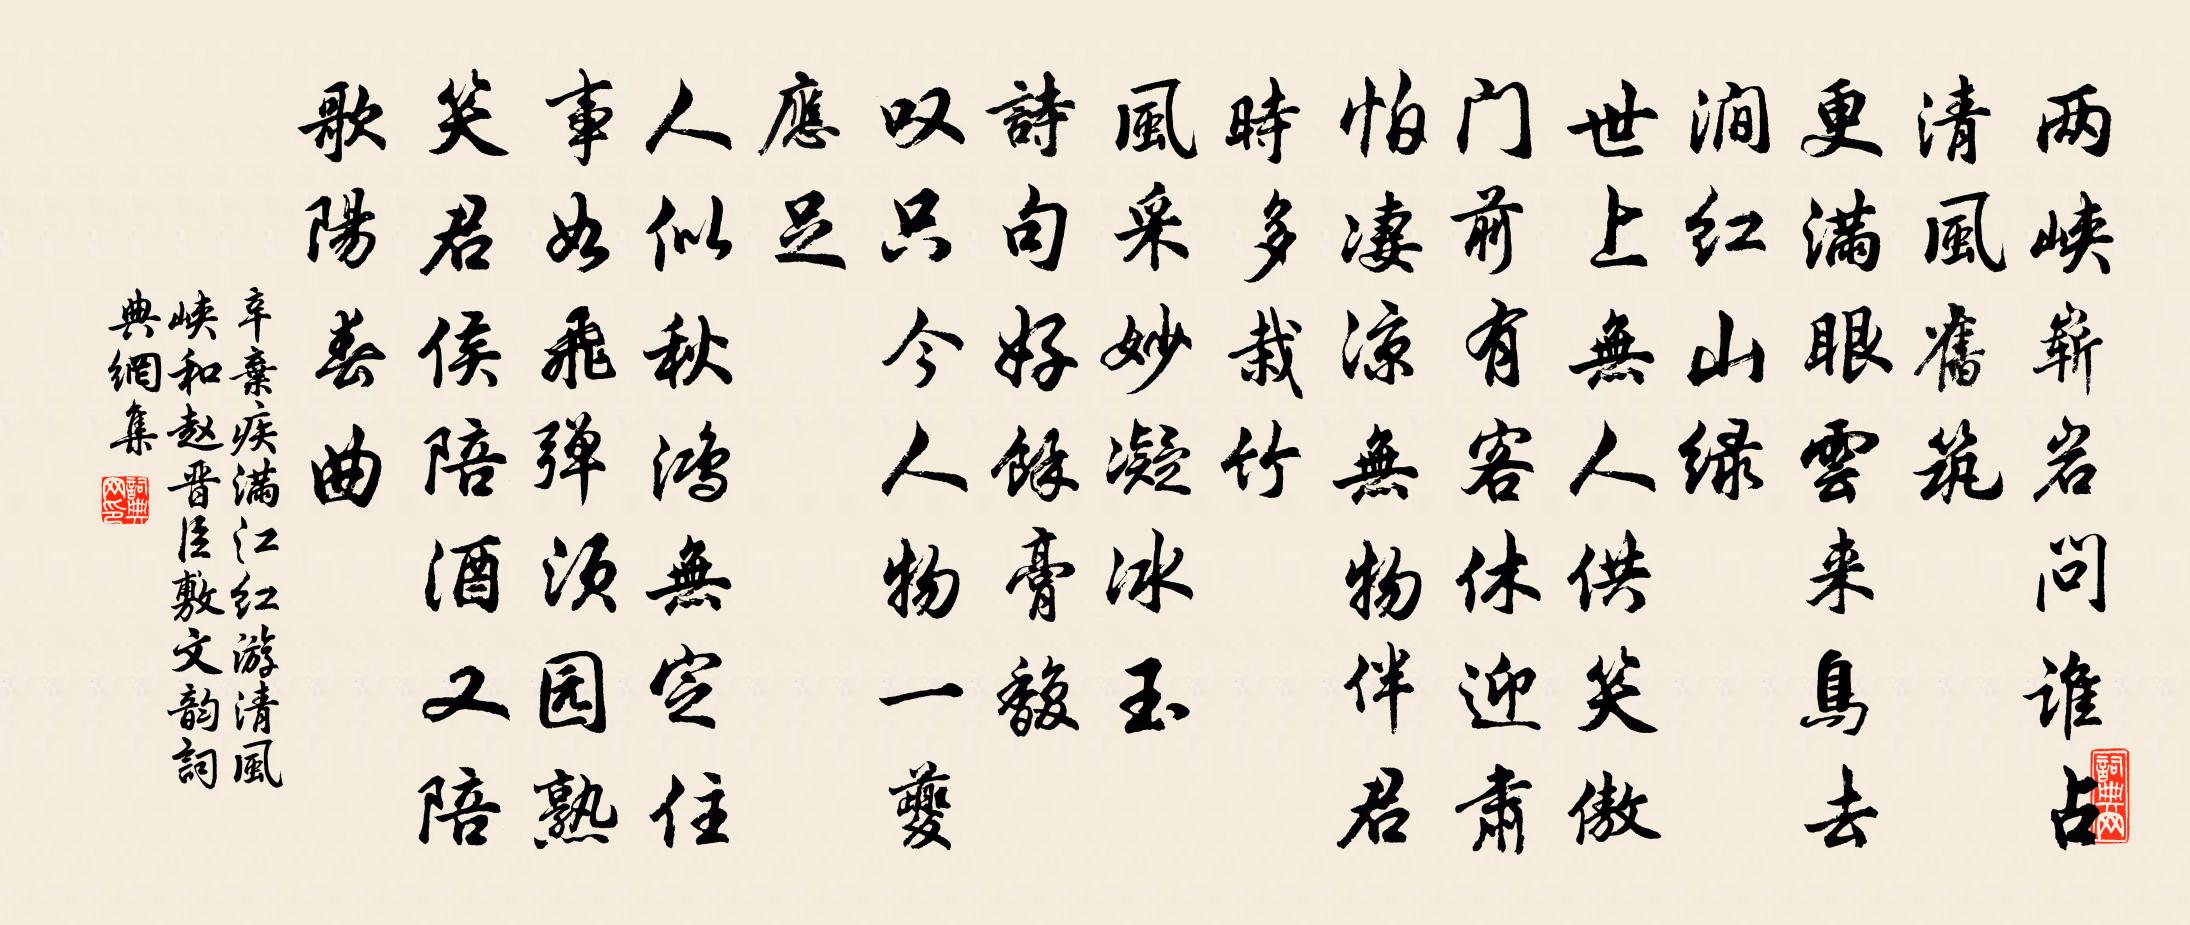 两峡崭岩问谁占
清風舊筑
更满眼雲来鳥去
涧红山绿
世上無人供笑傲
门前有客休迎肃
怕凄凉無物伴君
時多栽竹
風采妙凝冰玉
詩句好餘膏馥
叹只今人物一夔
應足
人似秋鸿無定住
事如飛弹须园熟
笑君侯陪酒又陪
歌陽春曲
辛棄疾满江红游清風
峡和赵晋臣敷文韵詞
典網集
詞典网
詞典网印